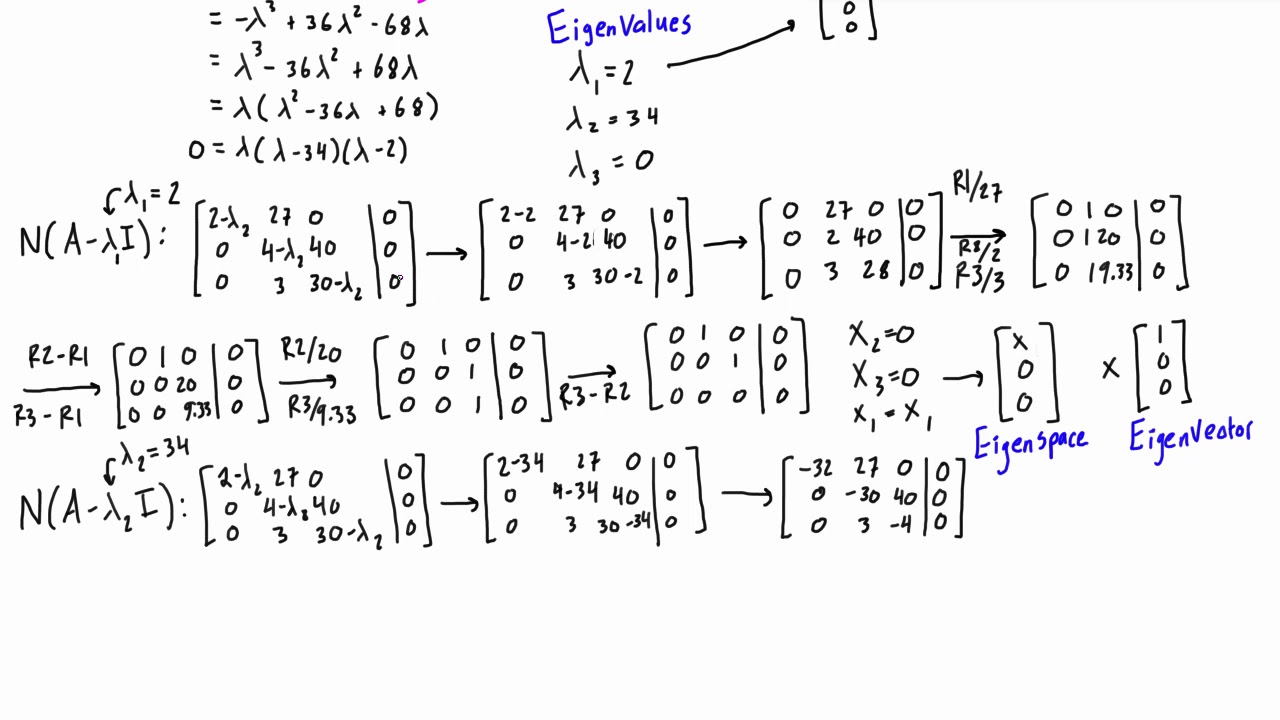 = -λ³ + 36λ² - 68λ
= λ³ - 36λ² + 68λ
= λ(λ² - 36λ + 68)
0 = λ(λ-34)(λ-2)
EigenValues
λ₁ = 2
λ₂ = 34
λ₃ = 0
0
0
λ₁ = 2
N(A-λ₁I):
2-λ₂ 27 0 | 0
0 4-λ₂ 40 | 0
0 3 30-λ₂ | 0
2-2 27 0 | 0
0 4-2 40 | 0
0 3 30-2 | 0
0 27 0 | 0
0 2 40 | 0
0 3 28 | 0
R1/27
R2/2
R3/3
0 1 0 | 0
0 1 20 | 0
0 1 9.33 | 0
R2-R1
R3-R1
0 1 0 | 0
0 0 20 | 0
0 0 9.33 | 0
R2/20
R3/9.33
0 1 0 | 0
0 0 1 | 0
0 0 1 | 0
R3-R2
0 1 0 | 0
0 0 1 | 0
0 0 0 | 0
X₂=0
X₃=0
X₁=X₁
X
0
0
Eigenspace
X
1
0
0
EigenVector
λ₂ = 34
N(A-λ₂I):
2-λ₂ 27 0 | 0
0 4-λ₂ 40 | 0
0 3 30-λ₂ | 0
2-34 27 0 | 0
0 4-34 40 | 0
0 3 30-34 | 0
-32 27 0 | 0
0 -30 40 | 0
0 3 -4 | 0